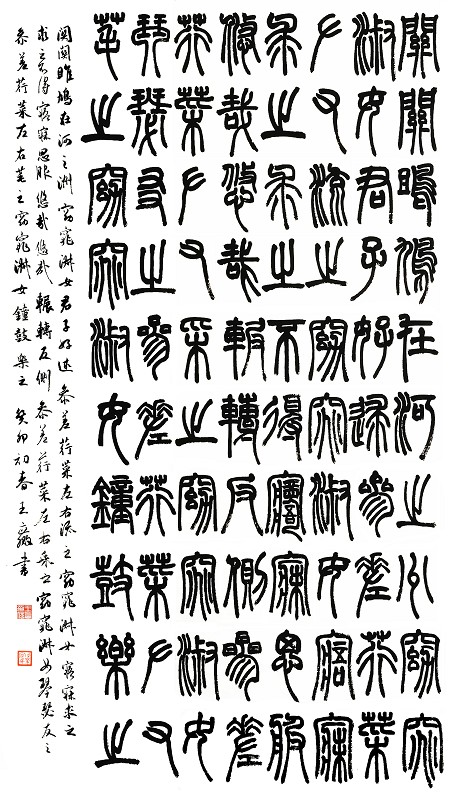 關關雎鳩在河之洲窈窕
淑女君子好逑參差荇菜
左右流之窈窕淑女寤寐
求之求之不得寤寐思服
悠哉悠哉輾轉反側參差
荇菜左右采之窈窕淑女
琴瑟友之參差荇菜左右
芼之窈窕淑女鐘鼓樂之
關關雎鳩在河之洲窈窕淑女君子好逑參差荇菜左右流之窈窕淑女寤寐求之
求之不得寤寐思服悠哉悠哉輾轉反側參差荇菜左右采之窈窕淑女琴瑟友之
參差荇菜左右芼之窈窕淑女鐘鼓樂之癸卯初春王書